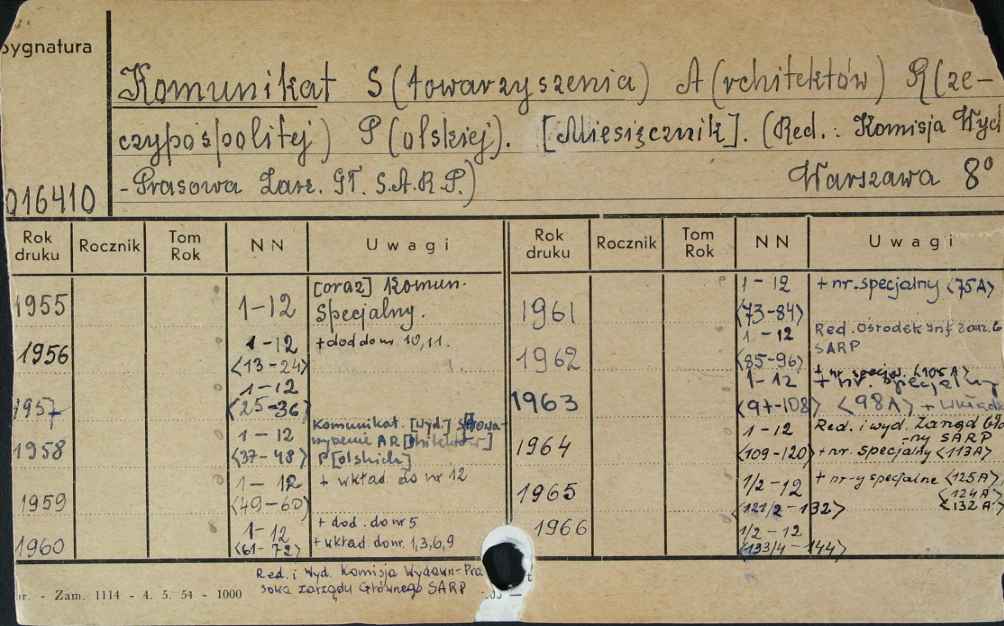 Sygnatura
Komunikat S(towarzyszenia) A(rchitektów) R(ze-
czypospolitej) P(olskiej). [Miesięcznik]. (Red.: Komisja Wyd
016410 -Prasowa Zarz. Gł. S.A.R.P.) Warszawa 8°
Rok druku Rocznik Tom Rok NN Uwagi Rok druku Rocznik Tom Rok NN Uwagi
1955 1-12 [oraz] Komun.
Specjalny.
1956 1-12 + dod do nr. 10,11.
<13-24>
1957 1-12
<25-36>
1958 1-12 Komunikat. [Wyd.] Stowa-
<37-48> rzyszenie AR[chitektów]
P[olskich]
1959 1-12 + wkład. do nr 12
<49-60>
1960 1-12 + dod. do nr 5
<61-72> + wkład do nr. 1,3,6,9
1961 1-12 + nr. specjalny <75A>
<73-84>
1962 1-12 Red. Ośrodek Inf. Zarz. G
<85-96> SARP
+ nr specj. <105A>
1963 1-12 + nr. specjalny
<97-108> <98A> + wkład
1964 1-12 Red. i wyd. Zarząd Głó
-ny SARP
<109-120> + nr. specjalny <113A>
1965 1/2-12 + nr-y specjalne <125A>
<121/2-132> <124A>
<132A>
1966 1/2-12
<133/4-144>
Red. i Wyd. Komisja Wydawn-Pra
sowa Zarządu Głównego SARP
r. - Zam. 1114 - 4. 5. 54 - 1000